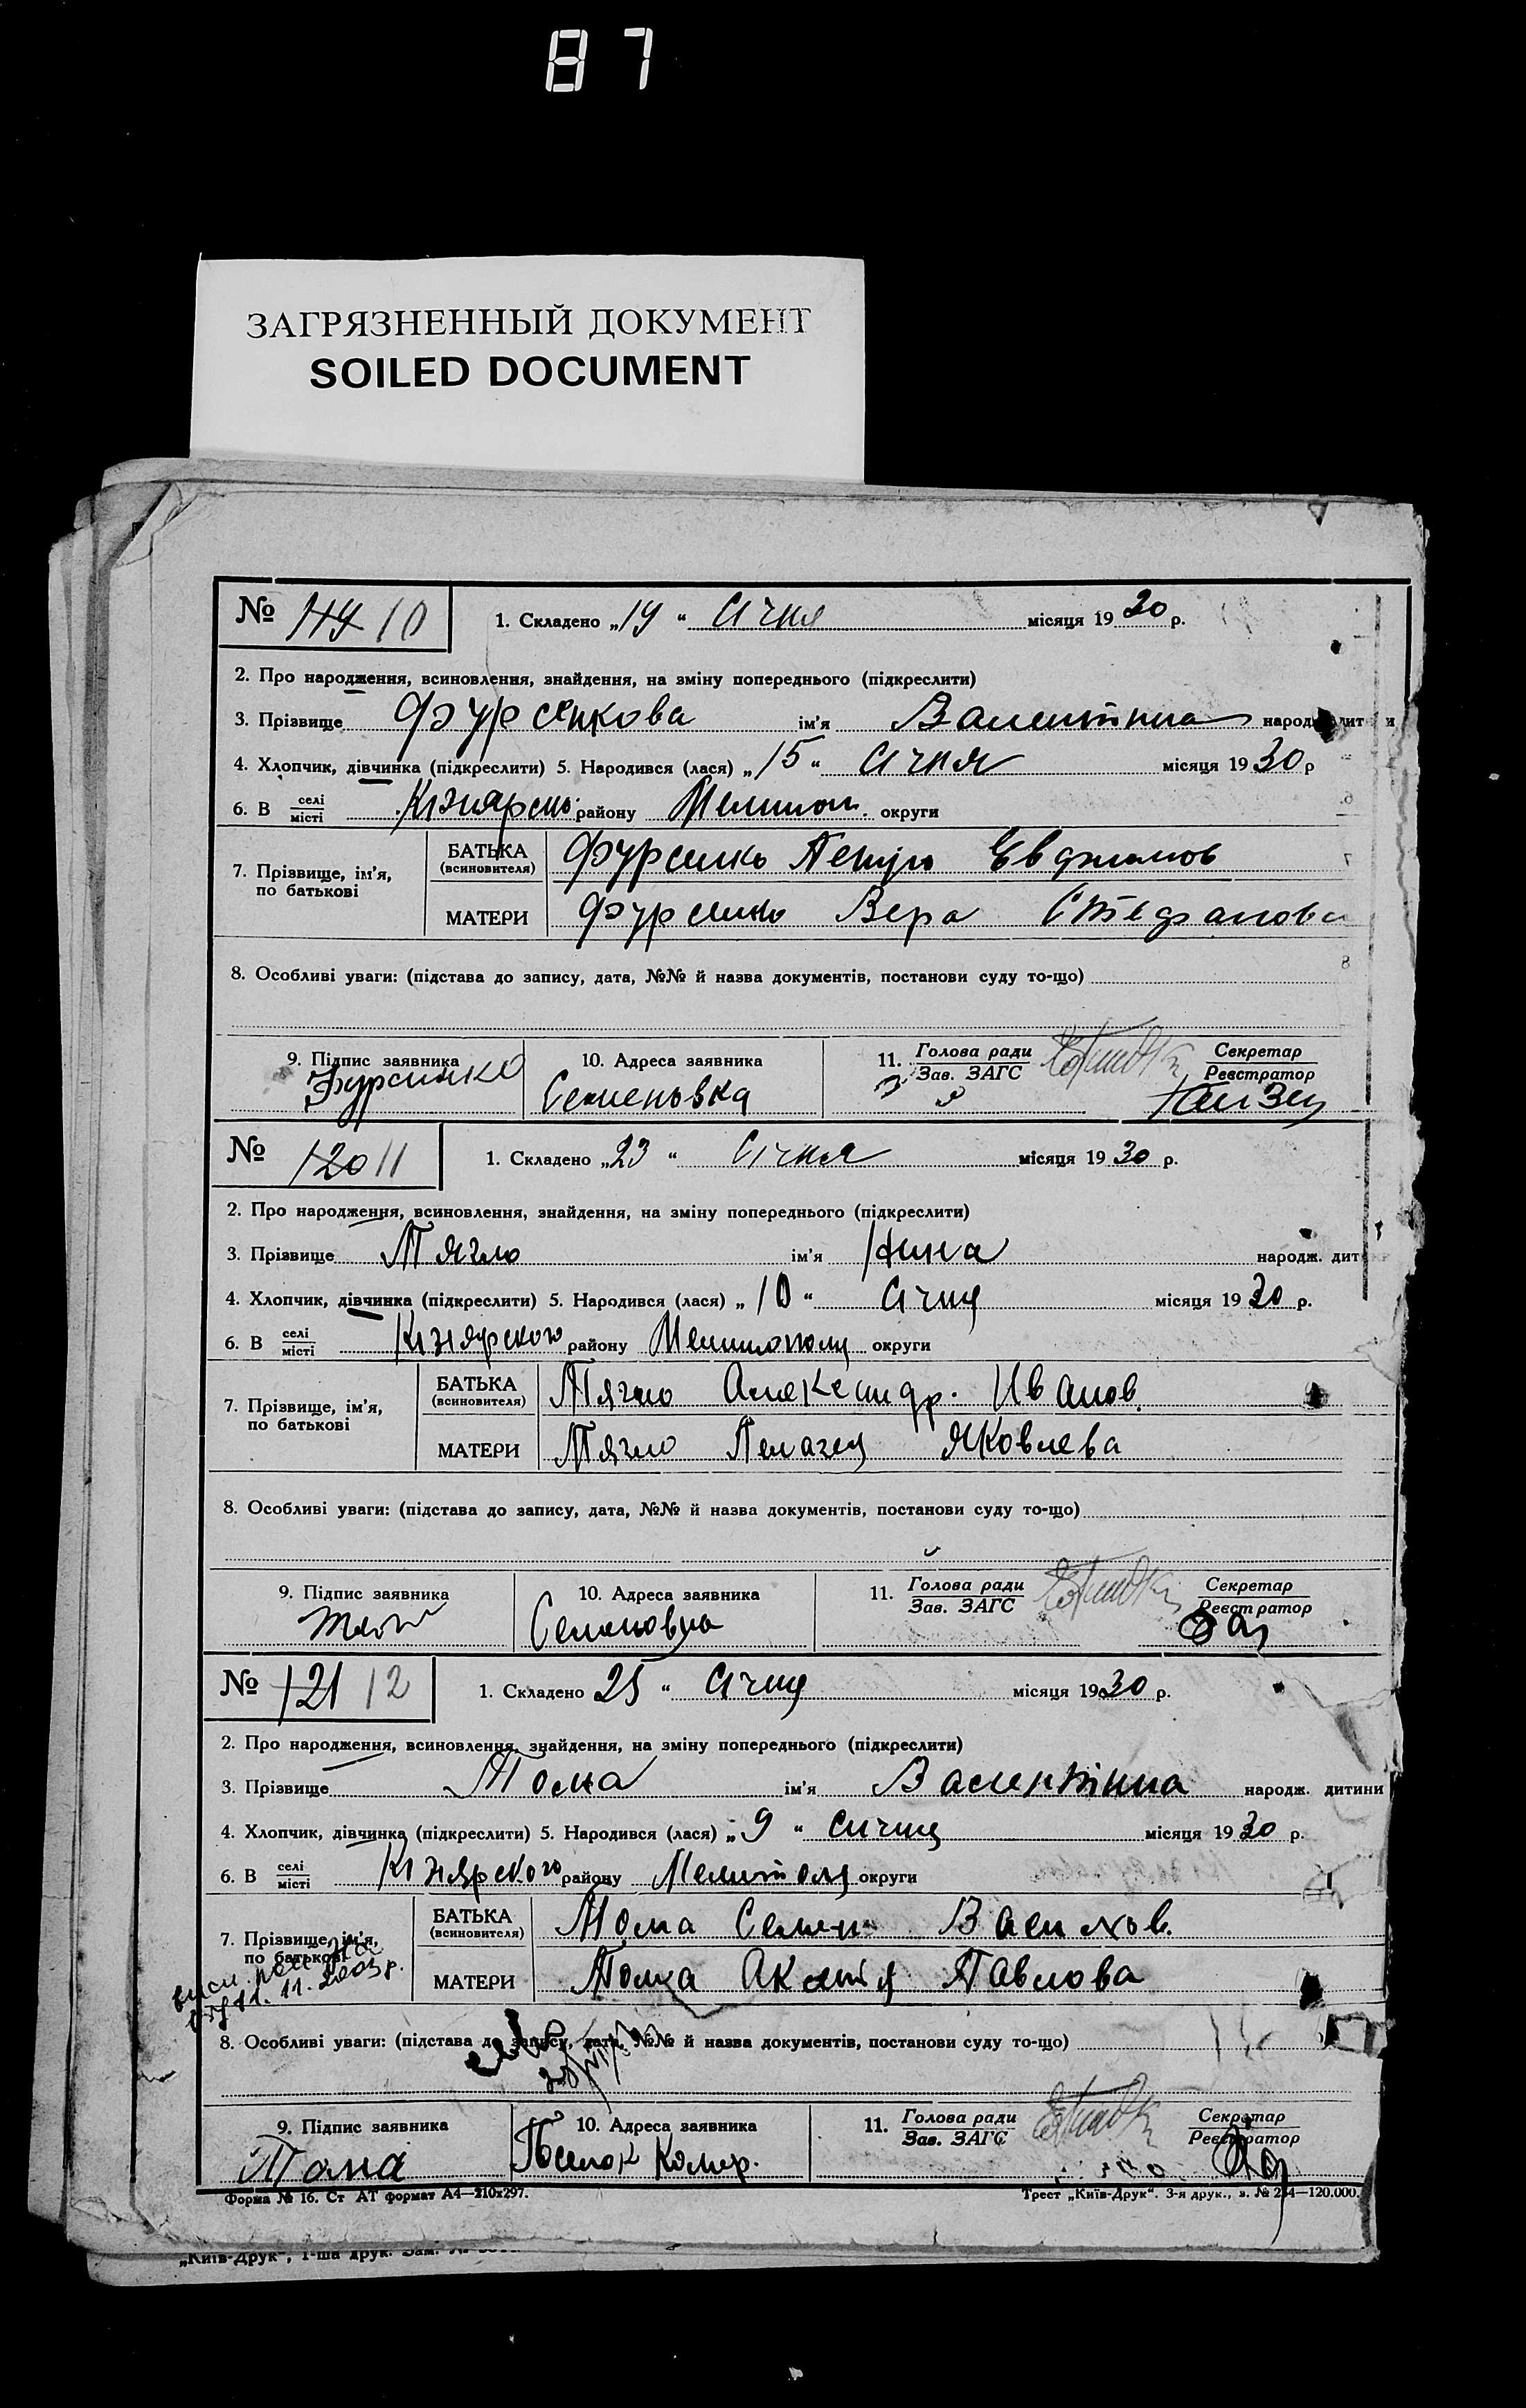 87
ЗАГРЯЗНЕННЫЙ ДОКУМЕНТ
SOILED DOCUMENT
№ 119 10 1. Складено „19“ Січня місяця 1930 р.
2. Про народження, всиновлення, знайдення, на зміну попереднього (підкреслити)
3. Прізвище Фурсенкова ім'я Валентина народж. дитини
4. Хлопчик, дівчинка (підкреслити) 5. Народився (лася) „15“ Січня місяця 1930 р
6. В селі місті району Мелитоп. округи
7. Прізвище, ім'я, по батькові
БАТЬКА (всиновителя) Фурсенко Петро Евфимов
МАТЕРИ Фурсенко Вера Стефанова
8. Особливі уваги: (підстава до запису, дата, №№ й назва документів, постанови суду то-що)
9. Підпис заявника 10. Адреса заявника 11. Голова ради Зав. ЗАГС Секретар Реєстратор
Фурсенко Семеновка
№ 120 11 1. Складено „23“ Січня місяця 1930 р.
2. Про народження, всиновлення, знайдення, на зміну попереднього (підкреслити)
3. Прізвище Тягло ім'я Нина народж. дит
4. Хлопчик, дівчинка (підкреслити) 5. Народився (лася) „10“ Січня місяця 1930 р.
6. В селі місті району Мелитополя округи
7. Прізвище, ім'я, по батькові
БАТЬКА (всиновителя) Тягло Александр. Иванов.
МАТЕРИ Тягло Пелагея Яковлева
8. Особливі уваги: (підстава до запису, дата, №№ й назва документів, постанови суду то-що)
9. Підпис заявника 10. Адреса заявника 11. Голова ради Зав. ЗАГС Секретар Реєстратор
Семеновка
№ 121 12 1. Складено 25“ Січня місяця 1930 р.
2. Про народження, всиновлення, знайдення, на зміну попереднього (підкреслити)
3. Прізвище Тома ім'я Валентина народж. дитини
4. Хлопчик, дівчинка (підкреслити) 5. Народився (лася) „9“ Сичня місяця 1930 р.
6. В селі місті району округи
7. Прізвище, ім'я, по батькові
БАТЬКА (всиновителя) Тома Семен
МАТЕРИ Тома Павлова
11.11.2003 р.
8. Особливі уваги: (підстава до запису, дата, №№ й назва документів, постанови суду то-що)
9. Підпис заявника 10. Адреса заявника 11. Голова ради Зав. ЗАГС Секретар Реєстратор
Тома
Форма № 16. Ст АТ формат А4—210x297. Трест „Київ-Друк“. 3-я друк., з. № 234—120.000.
„Київ-Друк“, 1-ша друк. Зам. №